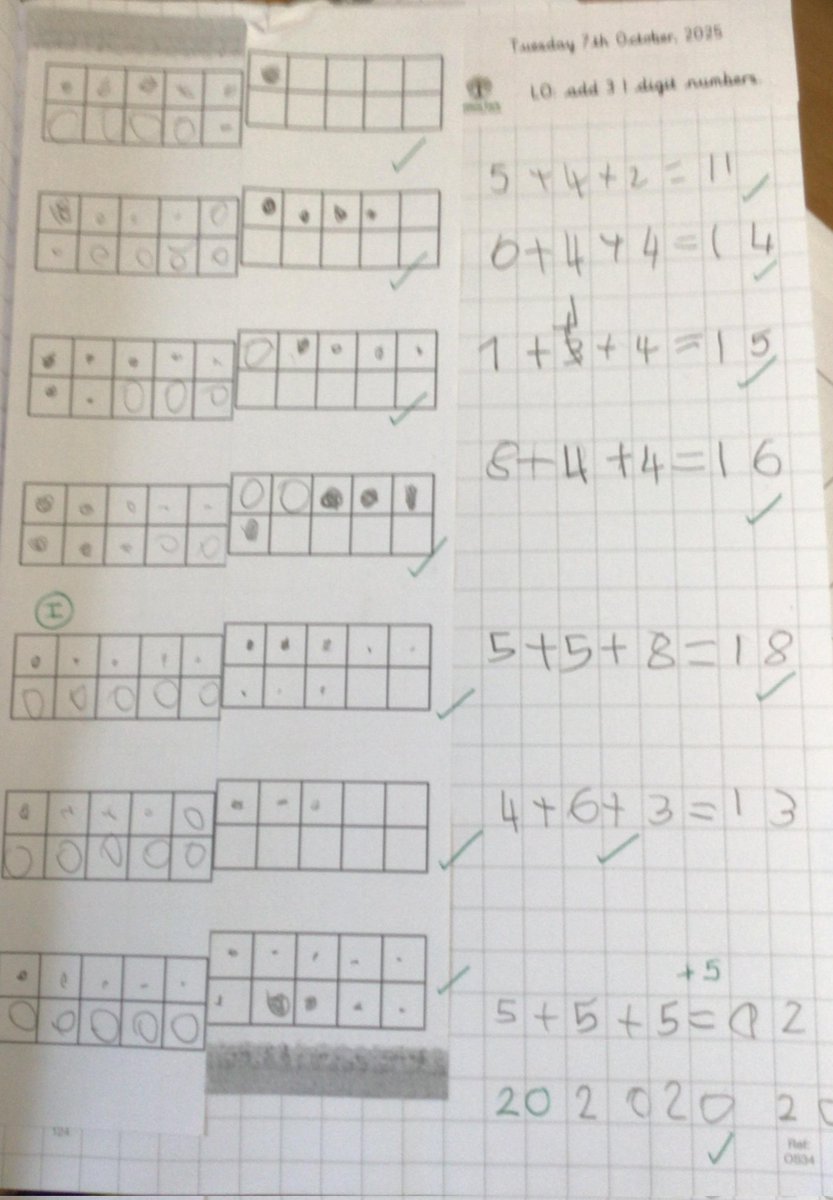 Tuesday 7th October, 2025
LO: add 3 1 digit numbers.
5 + 4 + 2 = 11
6 + 4 + 4 = 14
+ 4 = 15
8 + 4 + 4 = 16
I
5 + 5 + 8 = 18
4 + 6 + 3 = 13
+5
5 + 5 + 5 = 02
20 2 020 20
124
Ref:
OB34